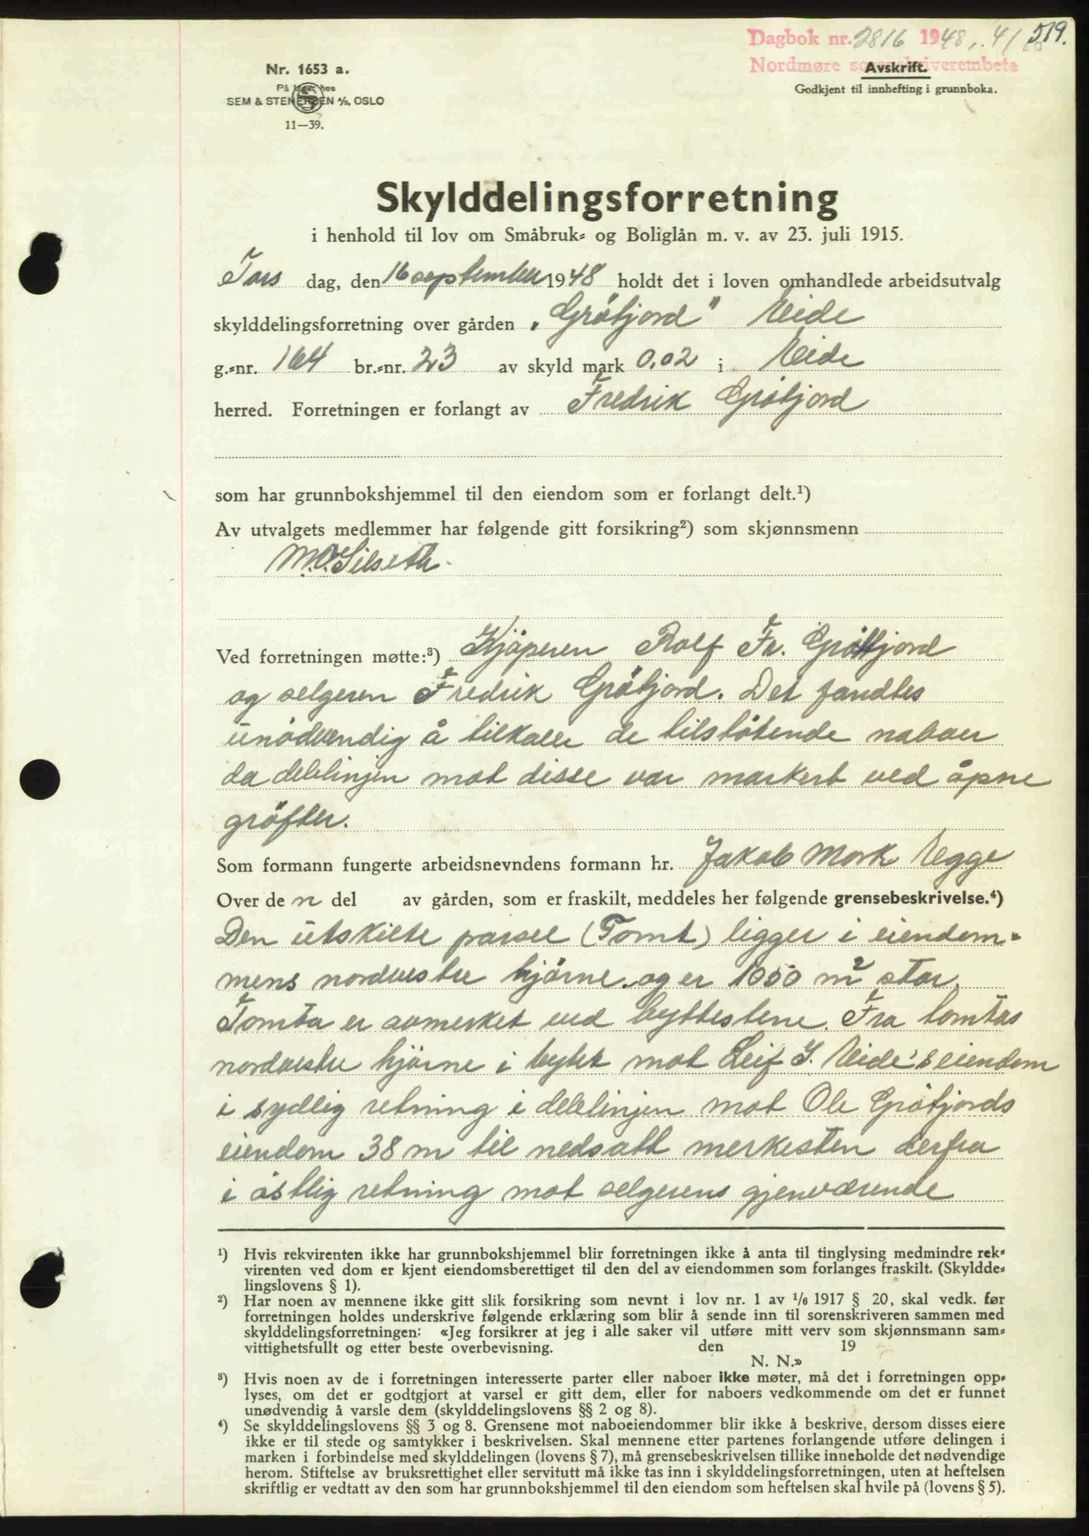 519.
Dagbok nr. 2816 1948, 4/10
Nordmøre sorenskriverembete
Nr. 1653 a.
Avskrift.
På lager hos
Godkjent til innhefting i grunnboka.
SEM & STENERSEN A/S, OSLO
11—39.
Skylddelingsforretning
i henhold til lov om Småbruk- og Boliglån m. v. av 23. juli 1915.
Tors dag, den 16 september 1948 holdt det i loven omhandlede arbeidsutvalg
skylddelingsforretning over gården „Gröfjord" Eide
g.-nr. 164 br.-nr. 23 av skyld mark 0.02 i Eide
herred. Forretningen er forlangt av Fredrik Gröfjord
som har grunnbokshjemmel til den eiendom som er forlangt delt.¹)
Av utvalgets medlemmer har følgende gitt forsikring²) som skjønnsmenn
M.O. Silseth.
Ved forretningen møtte:³) Kjöperen Rolf Fr. Gröfjord
og selgeren Fredrik Gröfjord. Det fandtes
unödvendig å tilkalle de tilstötende naboer
da delelinjen mot disse var markert ved åpne
gröfter.
Som formann fungerte arbeidsnevndens formann hr. Jakob Mork Egge
Over de n del av gården, som er fraskilt, meddeles her følgende grensebeskrivelse.⁴)
Den utskilte parsel (Tomt) ligger i eiendom-
mens nordvestre hjörne og er 1050 m² stor.
Tomta er avmerket ved byttestene. Fra tomtas
nordvestre hjörne i bytet mot Leif J. Eide's eiendom
i sydlig retning i delelinjen mot Ole Gröfjords
eiendom 38 m til nedsatt merkesten derfra
i östlig retning mot selgerens gjenværende
¹) Hvis rekvirenten ikke har grunnbokshjemmel blir forretningen ikke å anta til tinglysing medmindre rek-
virenten ved dom er kjent eiendomsberettiget til den del av eiendommen som forlanges fraskilt. (Skyldde-
lingslovens § 1).
²) Har noen av mennene ikke gitt slik forsikring som nevnt i lov nr. 1 av 1/6 1917 § 20, skal vedk. før
forretningen holdes underskrive følgende erklæring som blir å sende inn til sorenskriveren sammen med
skylddelingsforretningen: «Jeg forsikrer at jeg i alle saker vil utføre mitt verv som skjønnsmann sam-
vittighetsfullt og etter beste overbevisning. den 19
N. N.»
³) Hvis noen av de i forretningen interesserte parter eller naboer ikke møter, må det i forretningen opp-
lyses, om det er godtgjort at varsel er gitt dem, eller for naboers vedkommende om det er funnet
unødvendig å varsle dem (skylddelingslovens §§ 2 og 8).
⁴) Se skylddelingslovens §§ 3 og 8. Grensene mot naboeiendommer blir ikke å beskrive, dersom disses eiere
ikke er til stede og samtykker i beskrivelsen. Skal mennene etter partenes forlangende utføre delingen i
marken i forbindelse med skylddelingen (lovens § 7), må grensebeskrivelsen tillike inneholde det nødvendige
herom. Stiftelse av bruksrettighet eller servitutt må ikke tas inn i skylddelingsforretningen, uten at heftelsen
skriftlig er vedtatt av den som har grunnbokshjemmel til den eiendom som heftelsen skal hvile på (lovens § 5).